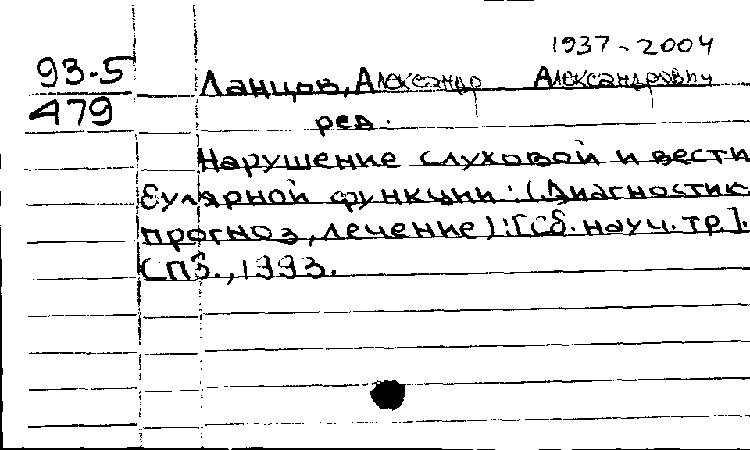 1937-2004
93-5
Ланцов, Александр Александрович
479
ред.
Нарушение слуховой и вести
булярной функции: (Диагностик
прогноз, лечение): [Сб. науч. тр.].
СПб., 1993.